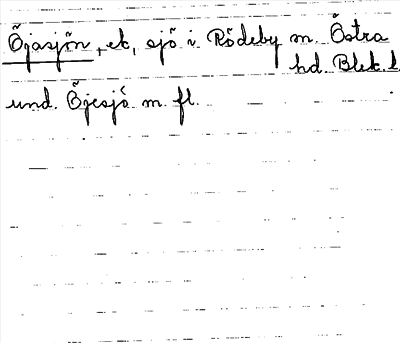 Öjasjön, et, sjö i Rödeby m. Östra
hd. Blek. l.
und. Öjesjö m. fl.